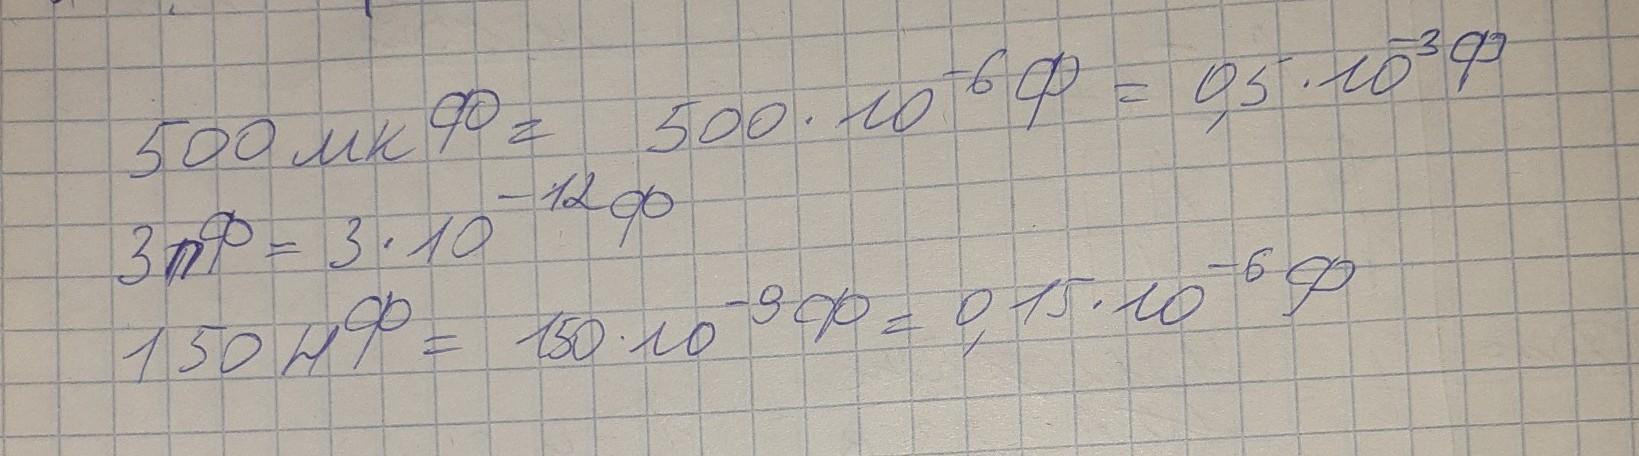 500 мкФ = 500 · 10⁻⁶ Ф = 0,5 · 10⁻³ Ф
3 пФ = 3 · 10⁻¹² Ф
150 нФ = 150 · 10⁻⁹ Ф = 0,15 · 10⁻⁶ Ф